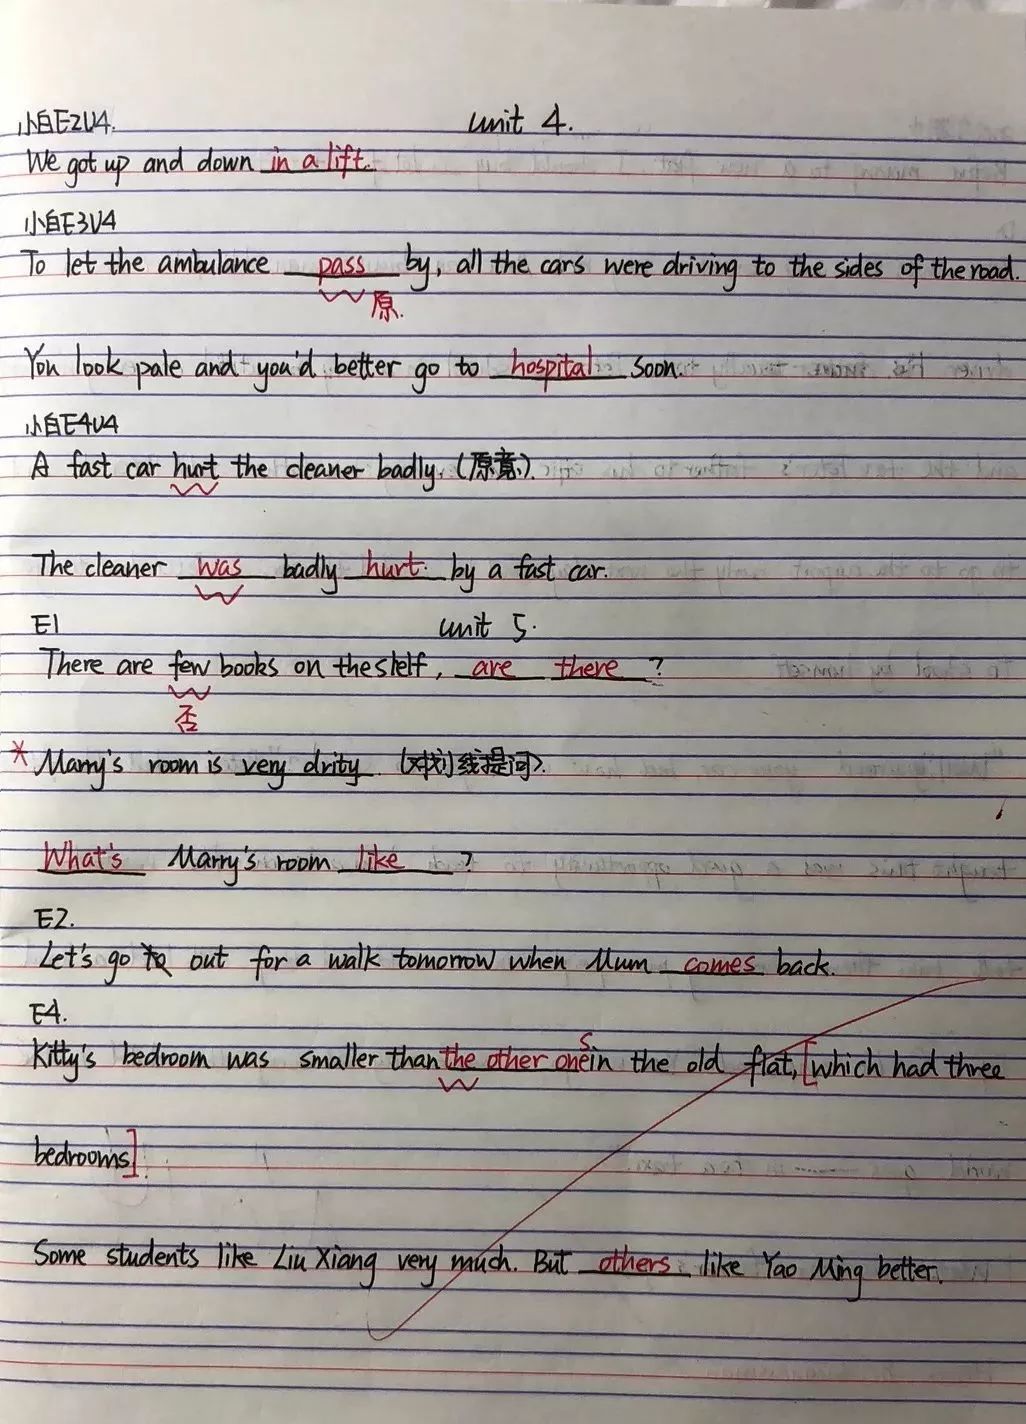 小白E2U4. Unit 4.
We got up and down in a lift.
小白E3U4
To let the ambulance pass by, all the cars were driving to the sides of the road.
原.
You look pale and you'd better go to hospital soon.
小白E4U4
A fast car hurt the cleaner badly. (原意).
The cleaner was badly hurt by a fast car.
E1 Unit 5.
There are few books on the slelf, are there ?
否
* Marry's room is very drity. (对划线提问).
What's Marry's room like ?
E2.
Let's go out for a walk tomorrow when Mum comes back.
E4.
Kitty's bedroom was smaller than the other ones in the old flat, [which had three
bedrooms].
Some students like Liu Xiang very much. But others like Yao Ming better.